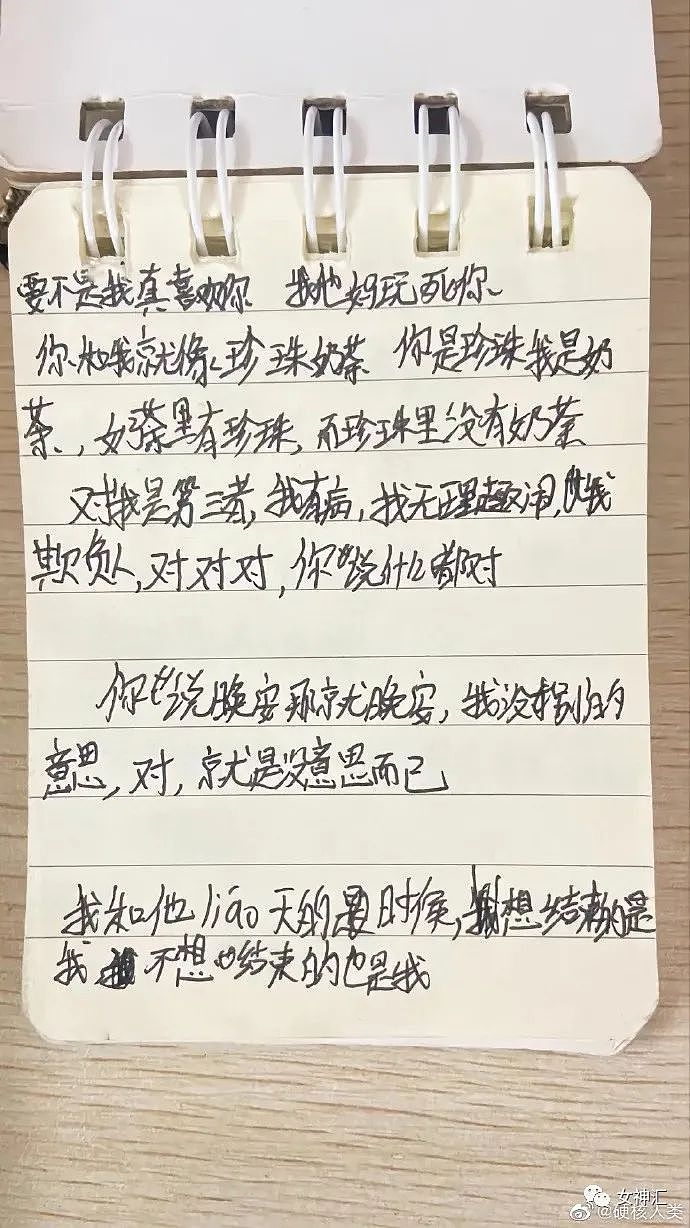 要不是我真喜欢你 我他妈玩死你、
你和我就像珍珠奶茶 你是珍珠我是奶
茶、,奶茶里有珍珠,而珍珠里没有奶茶
对我是第三者,我有病,我无理趣闹,
欺负人,对对对,你说什么都对
你说晚安那就晚安,我没有别的
意思,对,就是没意思而已
我和他liao天的时候,想结束的是
我 不想结束的也是我
女神汇
@硬核人类